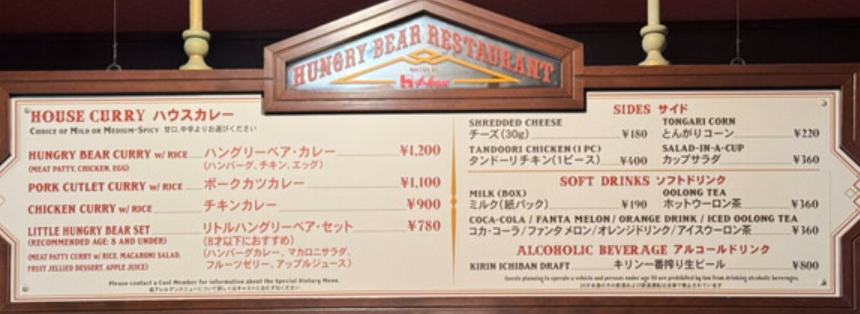 HUNGRY BEAR RESTAURANT
House
HOUSE CURRY ハウスカレー
CHOICE OF MILD OR MEDIUM-SPICY 甘口,中辛よりお選びください
HUNGRY BEAR CURRY w/ RICE ハングリーベア・カレー ¥1,200
(MEAT PATTY, CHICKEN, EGG) (ハンバーグ, チキン, エッグ)
PORK CUTLET CURRY w/ RICE ポークカツカレー ¥1,100
CHICKEN CURRY w/ RICE チキンカレー ¥900
LITTLE HUNGRY BEAR SET リトルハングリーベア・セット ¥780
(RECOMMENDED AGE: 8 AND UNDER) (8才以下におすすめ)
(MEAT PATTY CURRY w/ RICE, MACARONI SALAD, (ハンバーグカレー, マカロニサラダ,
FRUIT JELLIED DESSERT, APPLE JUICE) フルーツゼリー, アップルジュース)
Please contact a Cast Member for information about the Special Dietary Menu.
SIDES サイド
SHREDDED CHEESE
チーズ(30g) ¥180
TONGARI CORN
とんがりコーン ¥220
TANDOORI CHICKEN (1 PC)
タンドーリチキン(1ピース) ¥400
SALAD-IN-A-CUP
カップサラダ ¥360
SOFT DRINKS ソフトドリンク
MILK (BOX)
ミルク(紙パック) ¥190
OOLONG TEA
ホットウーロン茶 ¥360
COCA-COLA / FANTA MELON / ORANGE DRINK / ICED OOLONG TEA
コカ・コーラ/ファンタ メロン/オレンジドリンク/アイスウーロン茶 ¥360
ALCOHOLIC BEVERAGE アルコールドリンク
KIRIN ICHIBAN DRAFT キリン一番搾り生ビール ¥800
Guests planning to operate a vehicle and persons under age 20 are prohibited by law from drinking alcoholic beverages.